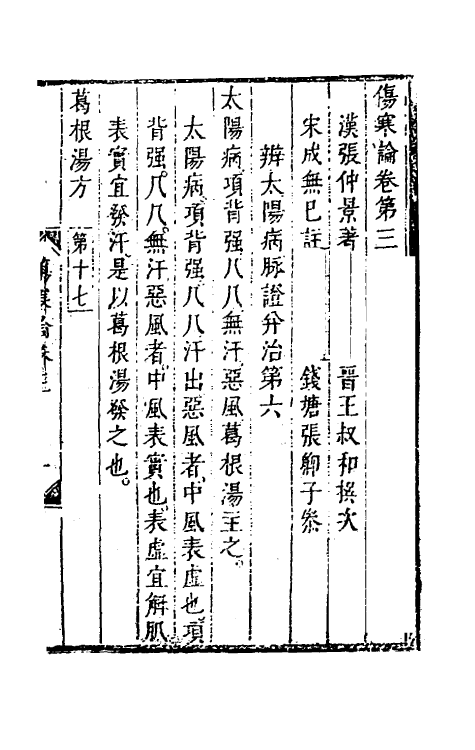 傷寒論卷第三
漢張仲景著　晉王叔和撰次
宋成無已註　錢塘張卿子叅
辨太陽病脉證并治第六
太陽病項背强八八無汗惡風葛根湯主之。
太陽病項背强八八汗出惡風者中風表虛也項
背强八八無汗惡風者中風表實也表虛宜解肌
表實宜發汗是以葛根湯發之也。
葛根湯方　第十七
傷寒論卷三　一